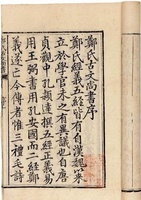 鄭氏古文尚書序
鄭氏經義五經皆有自漢魏㠯來
立於學官未之有異議也自唐
貞觀中孔穎達撰五經正義易
用王弼書用孔安國而二經鄭
義遂亡今傳者惟三禮毛詩